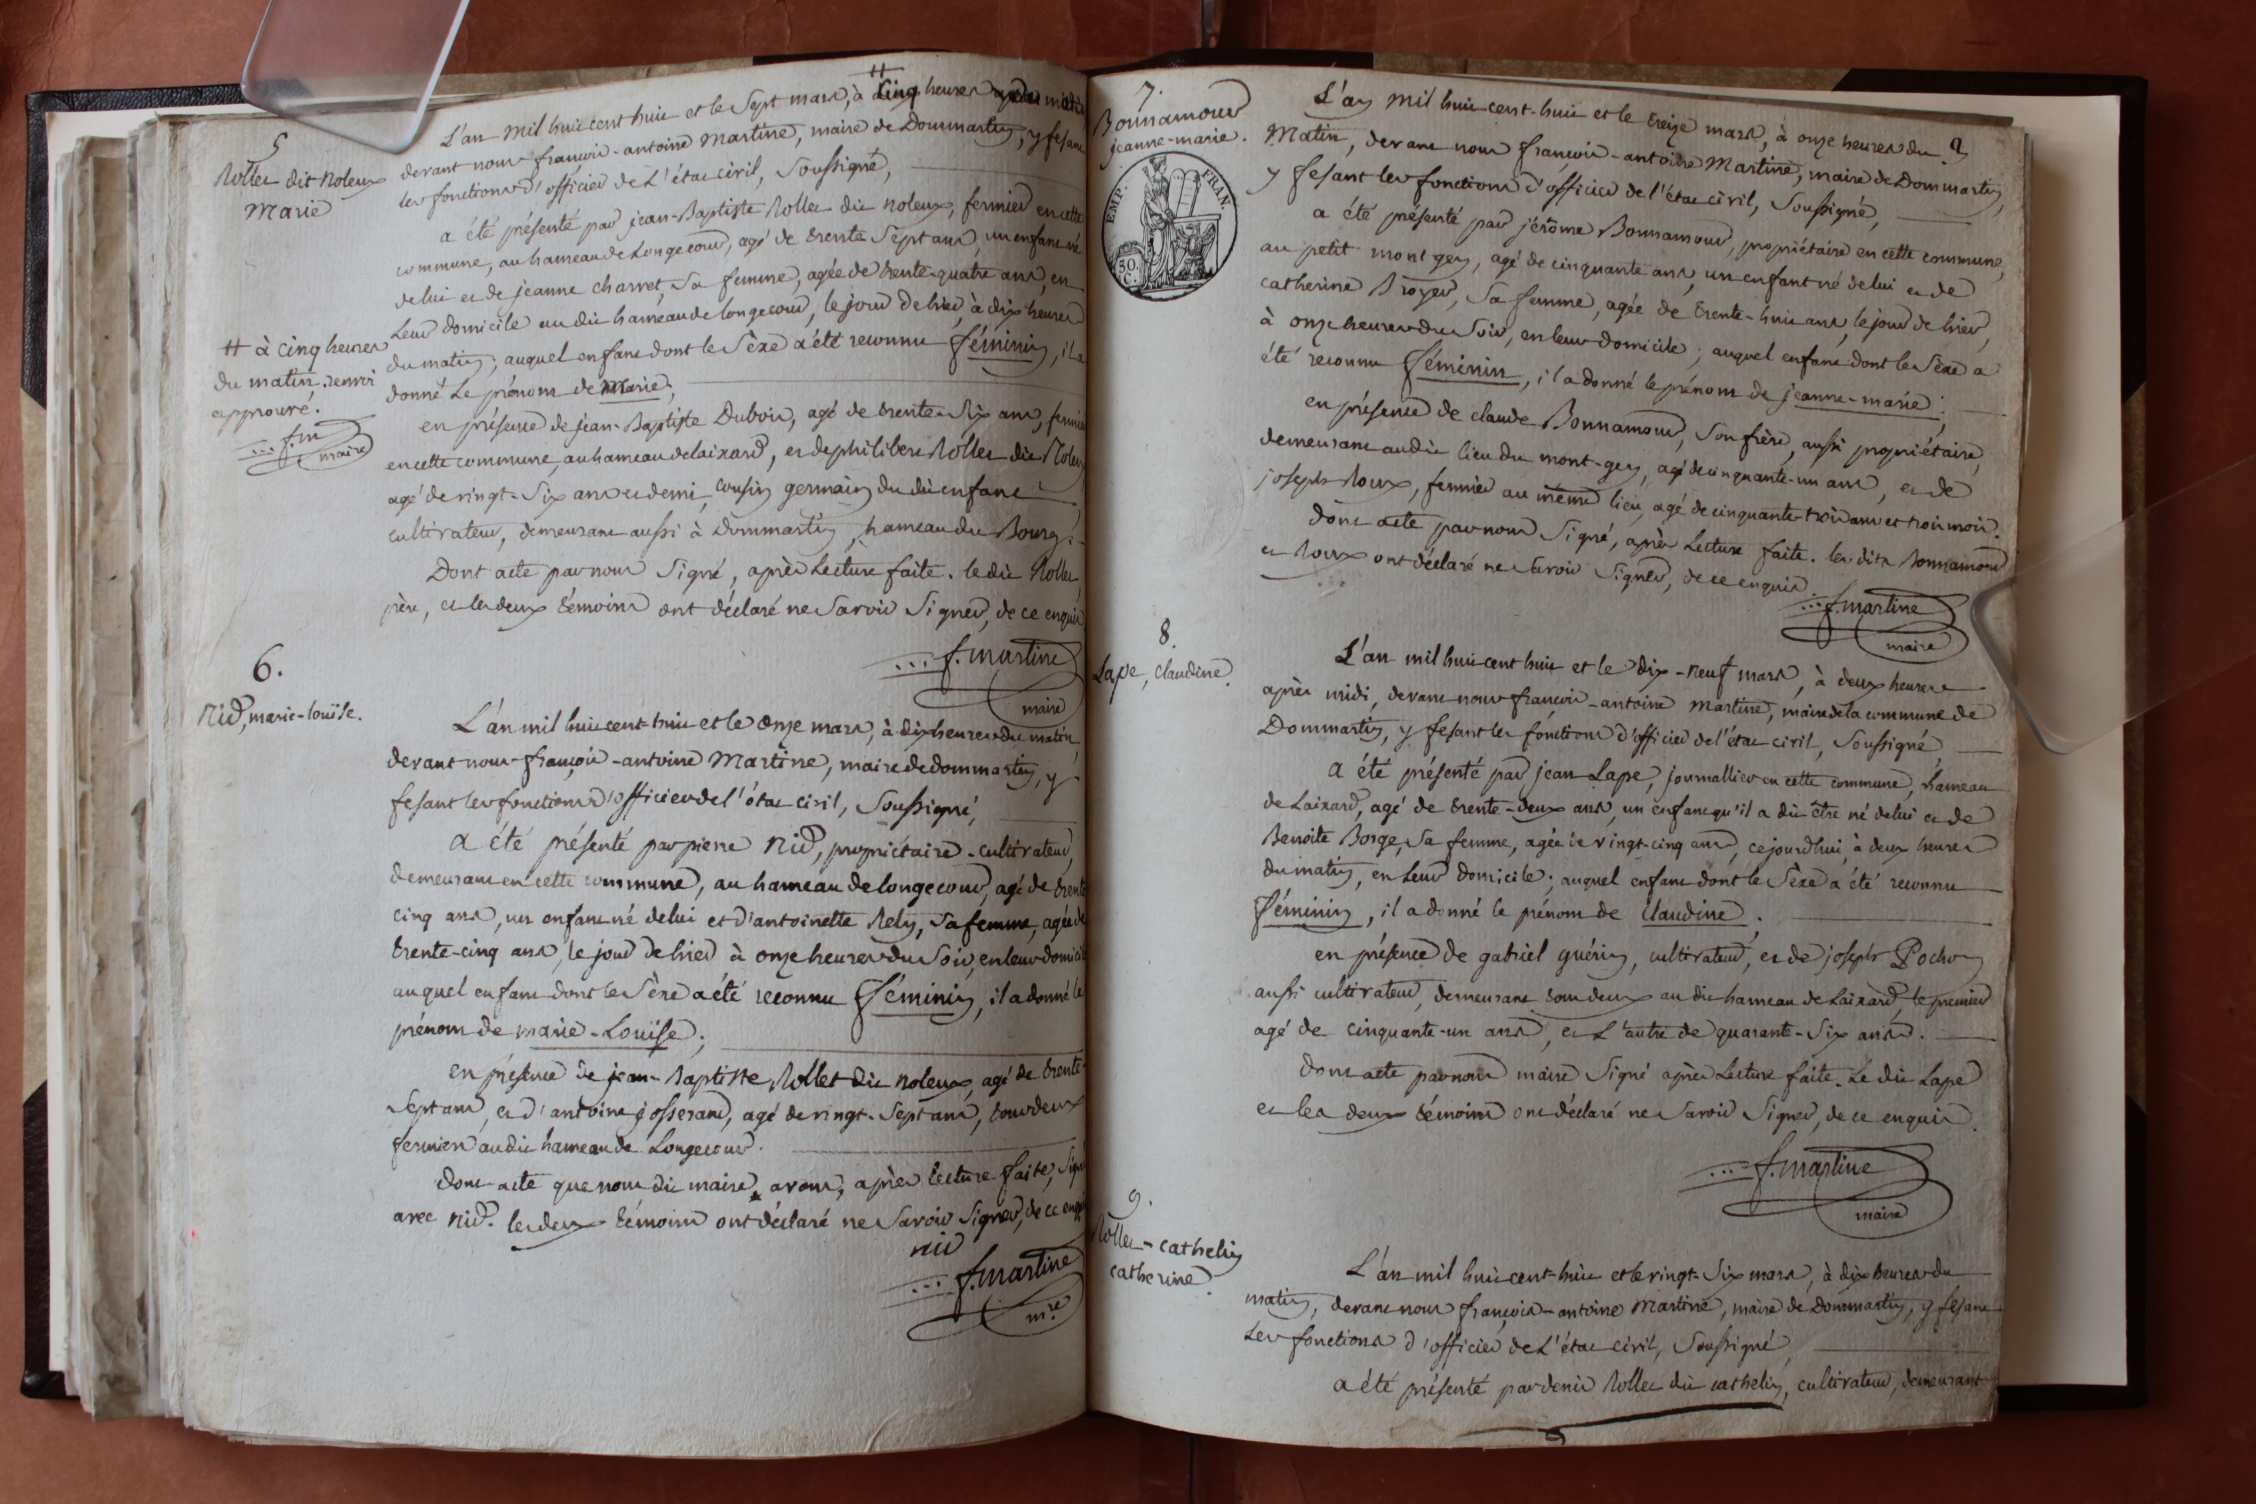 5
Rollet dit Noleux
Marie
L'an mil huit cent huit et le sept mars, à cinq heures
devant nous françois-antoine Martine, maire de Dommartin, y fesant
les fonctions d'officier de l'état civil, soussigné,
a été présenté par jean-Baptiste Rollet dit noleux, fermier en cette
commune, au hameau de Longecour, agé de trente sept ans, un enfant né
de lui et de jeanne charvet, sa femme, agée de trente-quatre ans, en
leur domicile au dit hameau de longecour, le jour de hier, à dix heures
du matin; auquel enfant dont le sèxe a été reconnu féminin, il a
donné le prénom de Marie;
# à cinq heures
du matin. renvoi
approuvé.
f.m
maire
en présence de jean-Baptiste Dubois, agé de trente six ans, fermier
en cette commune, au hameau de laizard, et de philibert Rollet dit Noleux
agé de vingt-six ans et demi, cousin germain du dit enfant
cultivateur, demeurant aussi à Dommartin, hameau du Bourg.
Dont acte par nous signé, après lecture faite. le dit Rollet,
père, et les deux témoins ont déclaré ne savoir signer, de ce enquis
f. martine
maire
6.
Nid, marie-louïse.
L'an mil huit cent-huit et le onze mars, à dix heures du matin,
devant nous françois-antoine Martine, maire de dommartin, y
fesant les fonctions d'officier de l'état civil, soussigné,
a été présenté par pierre Nid, propriétaire-cultivateur,
demeurant en cette commune, au hameau de longecour, agé de trente
cinq ans, un enfant né de lui et d'antoinette Rely, sa femme, agée de
trente-cinq ans, le jour de hier à onze heures du soir, en leur domicile
auquel enfant dont le sèxe a été reconnu féminin, il a donné le
prénom de marie-Louïse;
en présence de jean-Baptiste Rollet dit noleux, agé de trente
sept ans, et d'antoine josserand, agé de vingt-sept ans, tous deux
fermiers au dit hameau de Longecour.
dont acte que nous dit maire avons, après lecture faite, signé
avec nid. les deux témoins ont déclaré ne savoir signer, de ce enquis
nid
f. martine
m.re
7.
Bonnamour
jeanne-marie.
EMP. FRAN.
50. C.
L'an mil huit cent-huit et le treize mars, à onze heures du
matin, devant nous françois-antoine Martine, maire de Dommartin,
y fesant les fonctions d'officier de l'état civil, soussigné,
a été présenté par jérôme Bonnamour, propriétaire en cette commune,
au petit mont gey, agé de cinquante ans, un enfant né de lui et de
catherine Broyer, sa femme, agée de trente-huit ans, le jour de hier,
à onze heures du soir, en leur domicile; auquel enfant dont le sèxe a
été reconnu féminin, il a donné le prénom de jeanne-marie;
en présence de claude Bonnamour, son frère, aussi propriétaire,
demeurant au dit lieu du mont-gey, agé de cinquante-un ans, et de
joseph Roux, fermier au même lieu, agé de cinquante-trois ans et trois mois.
dont acte par nous signé, après lecture faite. les dits Bonnamour
et Roux ont déclaré ne savoir signer, de ce enquis.
f. martine
maire
8.
Lapé, claudine.
L'an mil huit cent huit et le dix-neuf mars, à deux heures
après midi, devant nous françois-antoine martine, maire de la commune de
Dommartin, y fesant les fonctions d'officier de l'état civil, soussigné,
a été présenté par jean Lapé, journallier en cette commune, hameau
de Laizard, agé de trente-deux ans, un enfant qu'il a dit être né de lui et de
Benoite Borge, sa femme, agée de vingt-cinq ans, cejourd'hui, à deux heures
du matin, en leur domicile; auquel enfant dont le sèxe a été reconnu
féminin, il a donné le prénom de claudine;
en présence de gabriel guérin, cultivateur, et de joseph Pochon
aussi cultivateur, demeurant tous deux au dit hameau de Laizard, le premier
agé de cinquante-un ans, et l'autre de quarante-six ans.
dont acte par nous maire signé après lecture faite. Le dit Lapé
et les deux témoins ont déclaré ne savoir signer, de ce enquis.
f. martine
maire
9.
Rollet-cathelin
catherine.
L'an mil huit cent-huit et le vingt-six mars, à dix heures du
matin, devant nous françois-antoine Martine, maire de Dommartin, y fesant
les fonctions d'officier de l'état civil, soussigné,
a été présenté par denis Rollet dit cathelin, cultivateur, demeurant